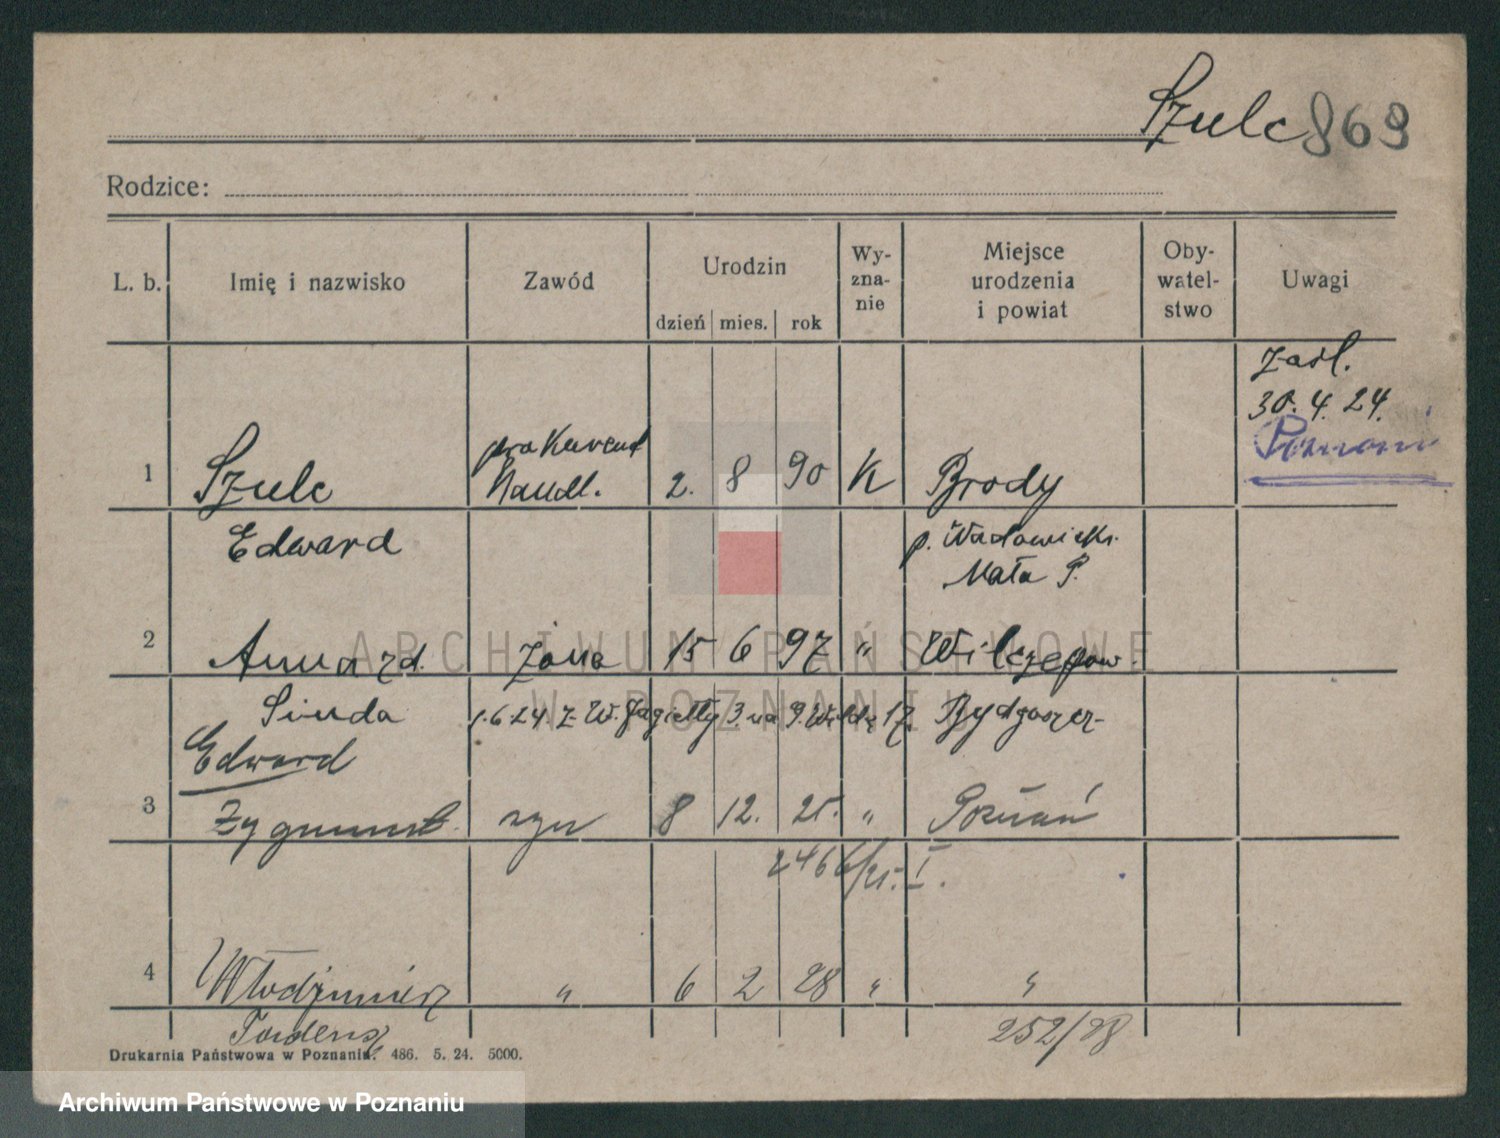 Szulc 869
Rodzice:
L. b. Imię i nazwisko Zawód Urodzin dzień mies. rok Wy-zna-nie Miejsce urodzenia i powiat Oby-watel-stwo Uwagi
zaśl.
30. 4. 24.
Poznań
1 Szulc prokurent handl. 2. 8 90 K Brody
Edward p. Wadowicki.
Mała P.
2 Anna zd. żona 15 6 97 " 
Sinda 1.6.24 z W. Jagiełły 3. na G. Wilda 17. Bydgoszcz-
Edward
3 Zygmunt syn 8 12. 25. " Poznań
2466/25. I.
4 Włodzimierz " 6 2 28 " "
252/28
Drukarnia Państwowa w Poznaniu. 486. 5. 24. 5000.
ARCHIWUM PAŃSTWOWE
W POZNANIU
Archiwum Państwowe w Poznaniu